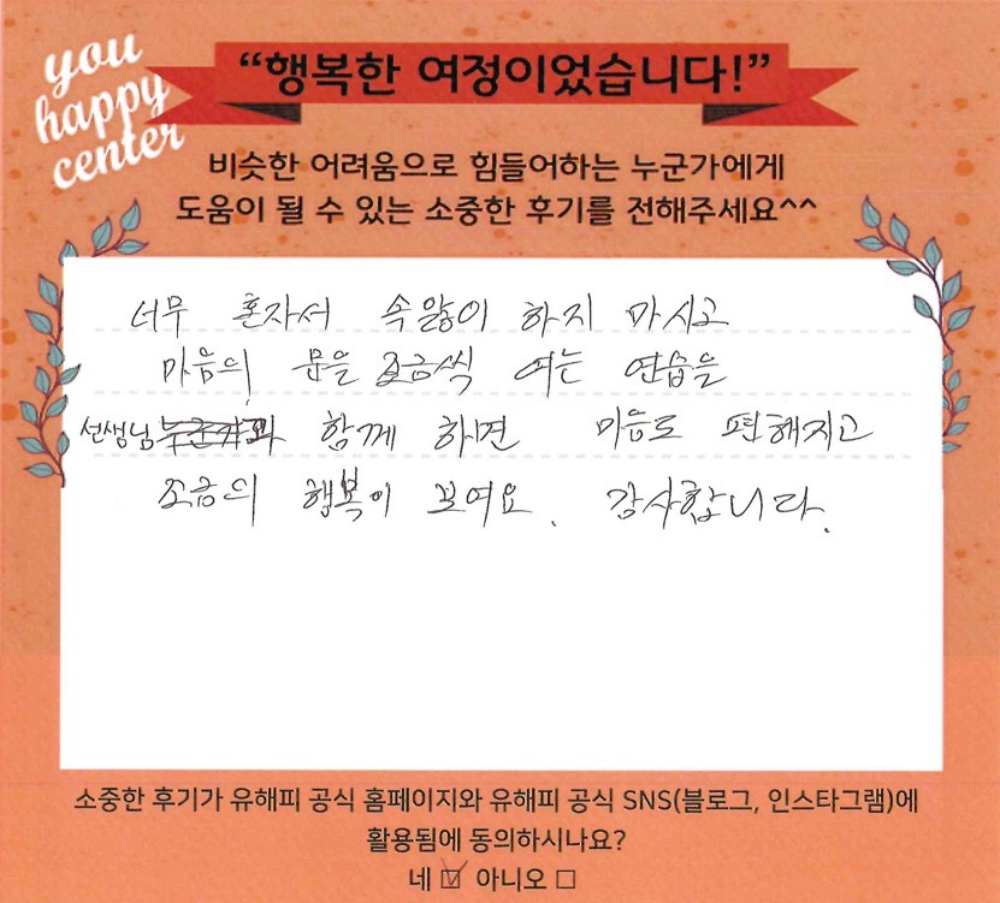 you
happy
center
“행복한 여정이었습니다!”
비슷한 어려움으로 힘들어하는 누군가에게
도움이 될 수 있는 소중한 후기를 전해주세요^^
너무 혼자서 속앓이 하지 마시고
마음의 문을 조금씩 여는 연습을
선생님과 함께 하면 마음도 편해지고
조금의 행복이 보여요. 감사합니다.
소중한 후기가 유해피 공식 홈페이지와 유해피 공식 SNS(블로그, 인스타그램)에
활용됨에 동의하시나요?
네 ☑ 아니오 □